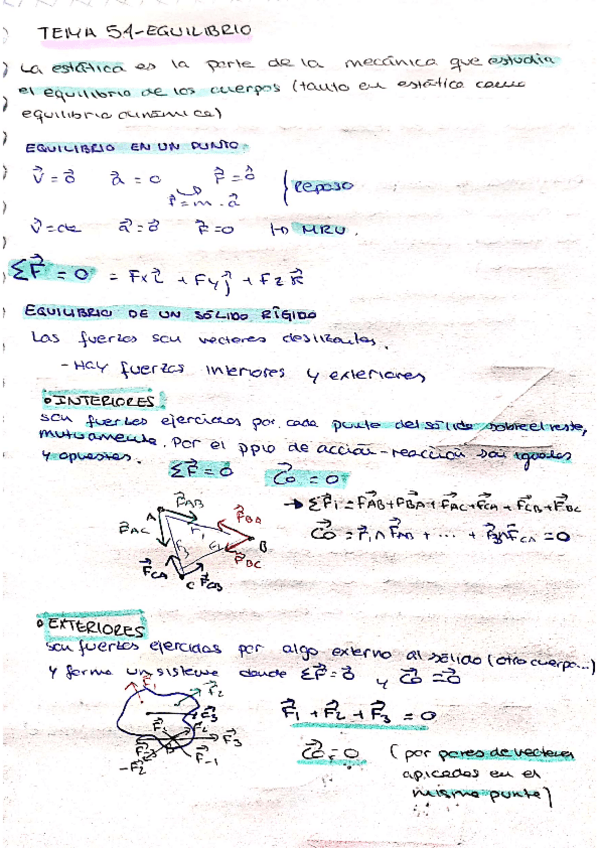 TEMA 51-EQUILIBRIO
La estática es la parte de la mecánica que estudia
el equilibrio de los cuerpos (tanto en estático como
equilibrio dinámica)
EQUILIBRIO EN UN PUNTO
V⃗ = 0⃗ a⃗ = 0 F⃗ = 0⃗ reposo
F⃗ = m · a⃗
V⃗ = cte a⃗ = 0⃗ F⃗ = 0 ↦ MRU.
ΣF⃗ = 0 = Fx i⃗ + Fy j⃗ + Fz k⃗
EQUILIBRIO DE UN SÓLIDO RÍGIDO
Las fuerzas son vectores deslizantes.
- Hay fuerzas interiores y exteriores
• INTERIORES
son fuerzas ejercidas por cada punto del sólido sobre el resto,
mutuamente. Por el ppio de acción-reacción son iguales
y opuestas. ΣF⃗ = 0 C⃗o = 0
→ ΣF⃗i = F⃗AB + F⃗BA + F⃗AC + F⃗CA + F⃗CB + F⃗BC
C⃗o = r⃗1 ∧ F⃗AB + ... + r⃗3 ∧ F⃗CA = 0
F⃗AB
A
F⃗BA
F⃗AC
r1
r3
B
F⃗BC
F⃗CA
C
F⃗CB
• EXTERIORES
son fuerzas ejercidas por algo externo al sólido (otro cuerpo...)
y forma un sistema donde ΣF⃗ = 0⃗ y C⃗o = 0⃗
F⃗1
F⃗2
F⃗3
F⃗1 + F⃗2 + F⃗3 = 0
F⃗2
F⃗3
-F⃗2
F⃗-1
C⃗o = 0 (por pares de vectores
aplicados en el
mismo punto)